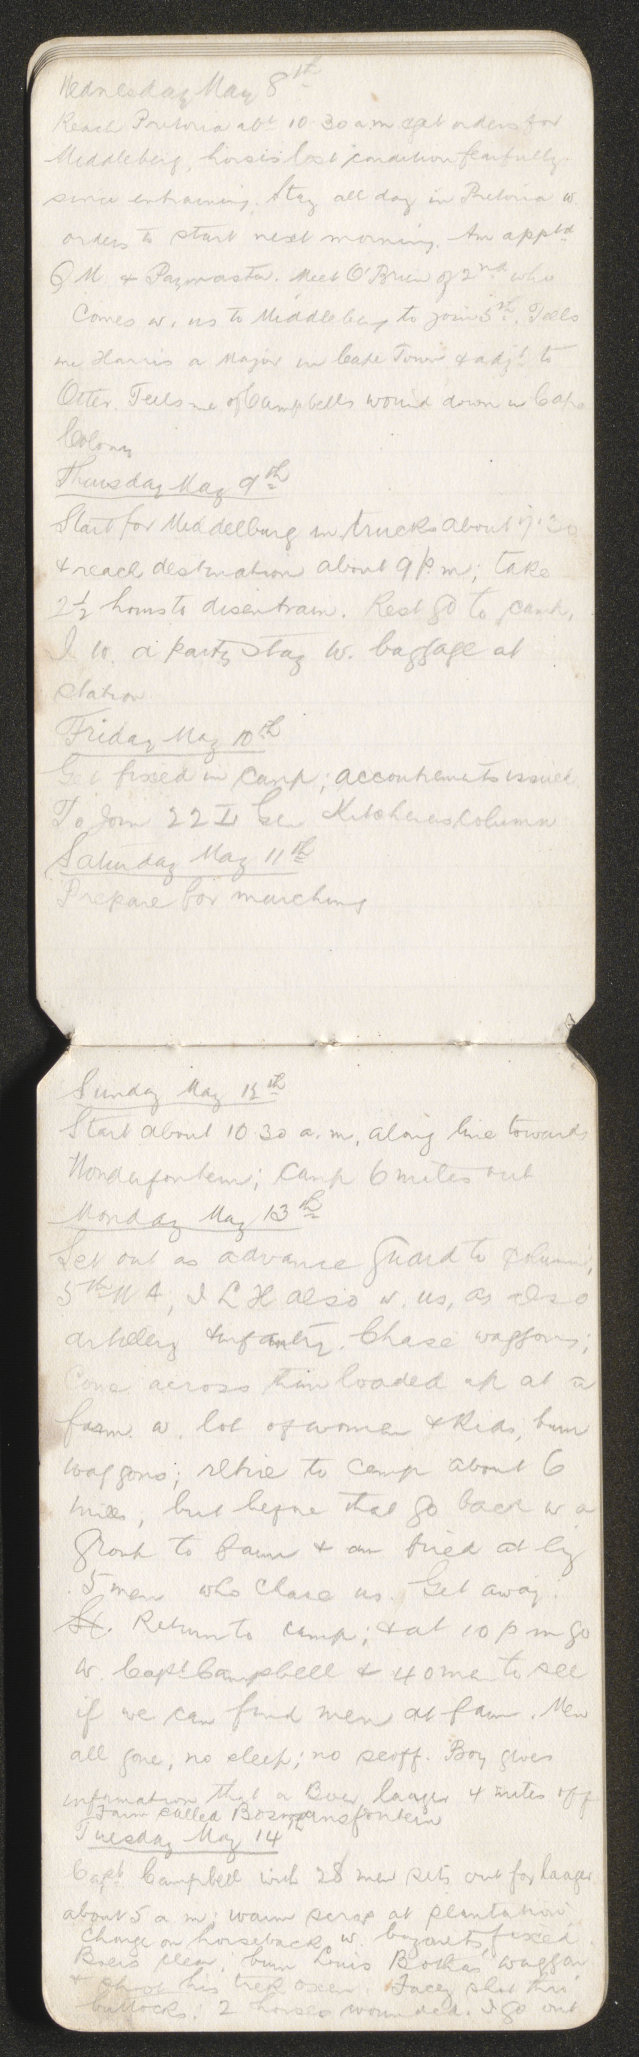 Wednesday May 8th
Reach Pretoria abt 10.30 a m & get orders for
Middleberg, horses lost condition fearfully
since entraining. Stay all day in Pretoria w.
orders to start next morning. Am apptd
Q M & Paymaster. Meet O'Brien of 2nd who
comes w. us to Middleberg to join 5th. Tells
me Harris a Major in Cape Town & adjt to
Otter. Tells me of Campbells wound down in Cape
Colony
Thursday May 9th
Start for Middelburg in trucks about 7.30
& reach destination about 9 p.m; take
2½ hours to disentrain. Rest go to camp,
I w. a party stay w. baggage at
station
Friday May 10th
Get fixed in camp; accoutrements issued
To join 22 Gen Kitcheners column
Saturday May 11th
Prepare for marching
Sunday May 12th
Start about 10.30 a.m, along line towards
Wonderfontein; camp 6 miles out
Monday May 13th
Set out as advance guard to column,
5th M A, I L H also w. us, as also
artillery & infantry. Chase waggons;
Come across them loaded up at a
farm w. lot of women & kids, burn
waggons; retire to camp about 6
miles; but before that go back w a
group to farm & am fired at by
5 men who chase us. Get away.
St. Return to camp; & at 10 p m go
w. Capt Campbell & 40 men to see
if we can find men at farm. Men
all gone; no sleep; no scoff. Boy gives
information that a Boer laager 4 miles off
Farm called Bosmansfontein
Tuesday May 14th
Capt Campbell with 28 men sets out for laager
about 5 a m: warm scrap at plantation
Charge on horseback w. bayonets fixed.
Boers clear, burn Louis Bothas waggon
& shoot his trek oxen. Facey shot thro
buttocks. 2 horses wounded. I go out